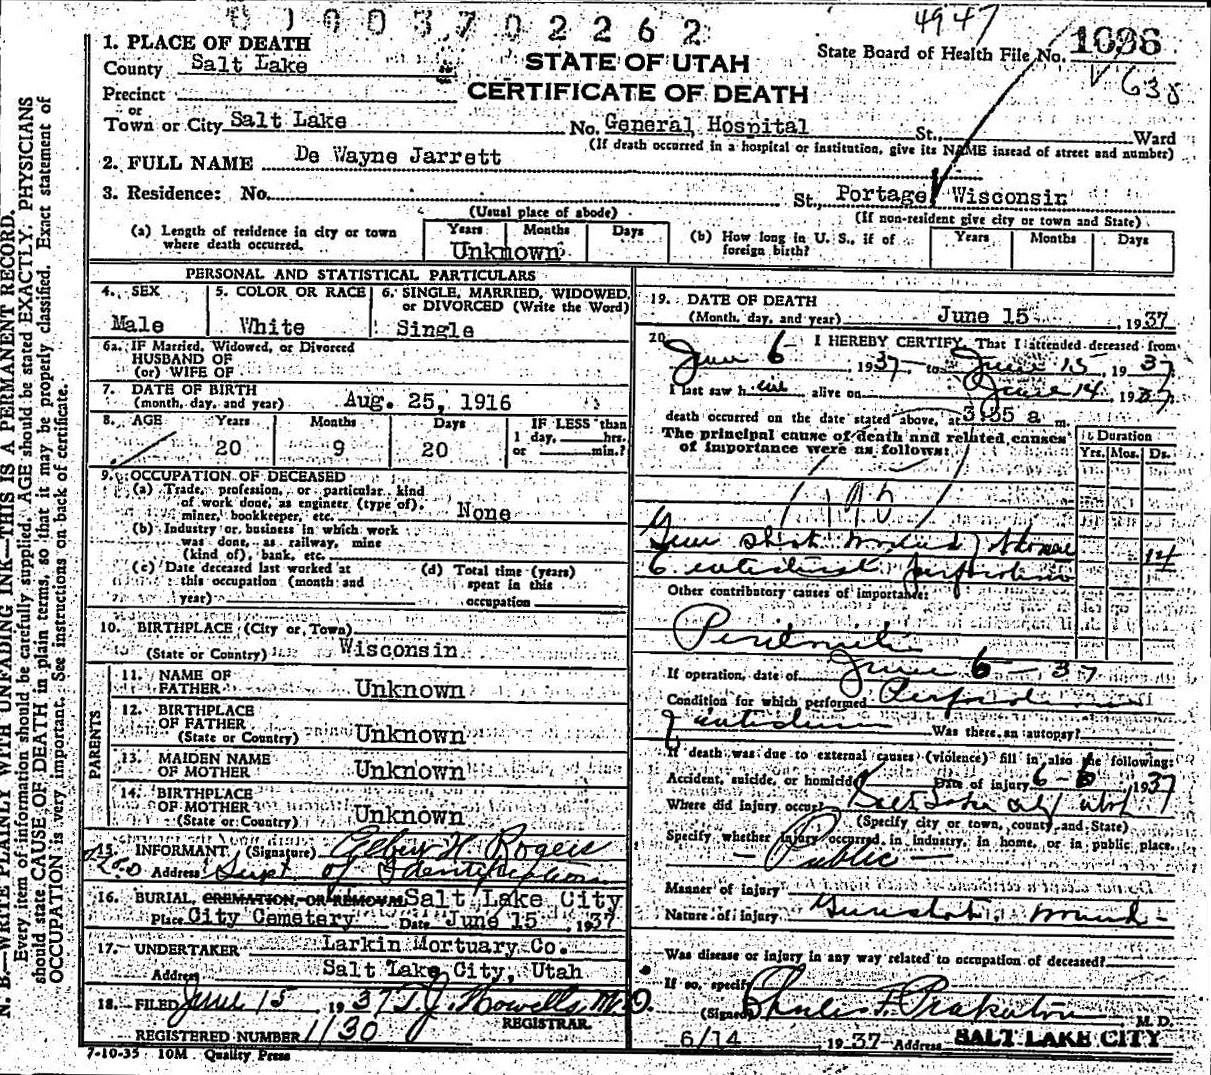 01003702262
4947
1. PLACE OF DEATH
County Salt Lake
STATE OF UTAH
State Board of Health File No. 1096
638
Precinct
CERTIFICATE OF DEATH
or
Town or City Salt Lake No. General Hospital St., Ward
(If death occurred in a hospital or institution, give its NAME instead of street and number)
2. FULL NAME De Wayne Jarrett
3. Residence: No. St., Portage Wisconsin
(Usual place of abode)
(If non-resident give city or town and State)
(a) Length of residence in city or town where death occurred.
Years Months Days
Unknown
(b) How long in U. S., if of foreign birth?
Years Months Days
PERSONAL AND STATISTICAL PARTICULARS
4. SEX
Male
5. COLOR OR RACE
White
6. SINGLE, MARRIED, WIDOWED, or DIVORCED (Write the Word)
Single
6a. IF Married, Widowed, or Divorced
HUSBAND OF
(or) WIFE OF
7. DATE OF BIRTH
(month, day, and year) Aug. 25, 1916
8. AGE Years Months Days IF LESS than
20 9 20
1 day, hrs.
or min.?
9. OCCUPATION OF DECEASED
(a) Trade, profession, or particular kind
of work done, as engineer (type of),
miner, bookkeeper, etc. None
(b) Industry or business in which work
was done, as railway, mine
(kind of), bank, etc.
(c) Date deceased last worked at
this occupation (month and
year)
(d) Total time (years)
spent in this
occupation
10. BIRTHPLACE (City or Town)
(State or Country) Wisconsin
PARENTS
11. NAME OF
FATHER Unknown
12. BIRTHPLACE
OF FATHER
(State or Country) Unknown
13. MAIDEN NAME
OF MOTHER Unknown
14. BIRTHPLACE
OF MOTHER
(State or Country) Unknown
15. INFORMANT (Signature) H Rogers
Address Supt of Identification
16. BURIAL, CREMATION, OR REMOVAL Salt Lake City
Place City Cemetery Date June 15, 1937
17. UNDERTAKER Larkin Mortuary Co.
Address Salt Lake City, Utah
18. FILED June 15 1937 T. J. Howells M.D.
REGISTRAR.
REGISTERED NUMBER 1130
7-10-35 10M Quality Press
19. DATE OF DEATH
(Month, day, and year) June 15, 1937
20. I HEREBY CERTIFY, That I attended deceased from
June 6, 1937, to June 15, 1937
I last saw him alive on June 14, 1937
death occurred on the date stated above, at 3:35 a m.
The principal cause of death and related causes
of importance were as follows:
Duration
Yrs. Mos. Ds.
Gun shot wound
14
Other contributory causes of importance:
Peritonitis
If operation, date of June 6 - 37
Condition for which performed Perforations
of intestine
Was there an autopsy?
If death was due to external causes (violence) fill in also the following:
Accident, suicide, or homicide Date of injury 6-6 1937
Where did injury occur? Salt Lake City Utah
(Specify city or town, county, and State)
Specify whether injury occurred in industry, in home, or in public place.
- Public -
Manner of injury
Nature of injury Gunshot wound -
Was disease or injury in any way related to occupation of deceased?
If so, specify
(Signed) Charles F. M. D.
6/14 1937 Address SALT LAKE CITY
N. B.—WRITE PLAINLY WITH UNFADING INK—THIS IS A PERMANENT RECORD.
Every item of information should be carefully supplied. AGE should be stated EXACTLY. PHYSICIANS
should state CAUSE OF DEATH in plain terms, so that it may be properly classified. Exact statement of
OCCUPATION is very important. See instructions on back of certificate.